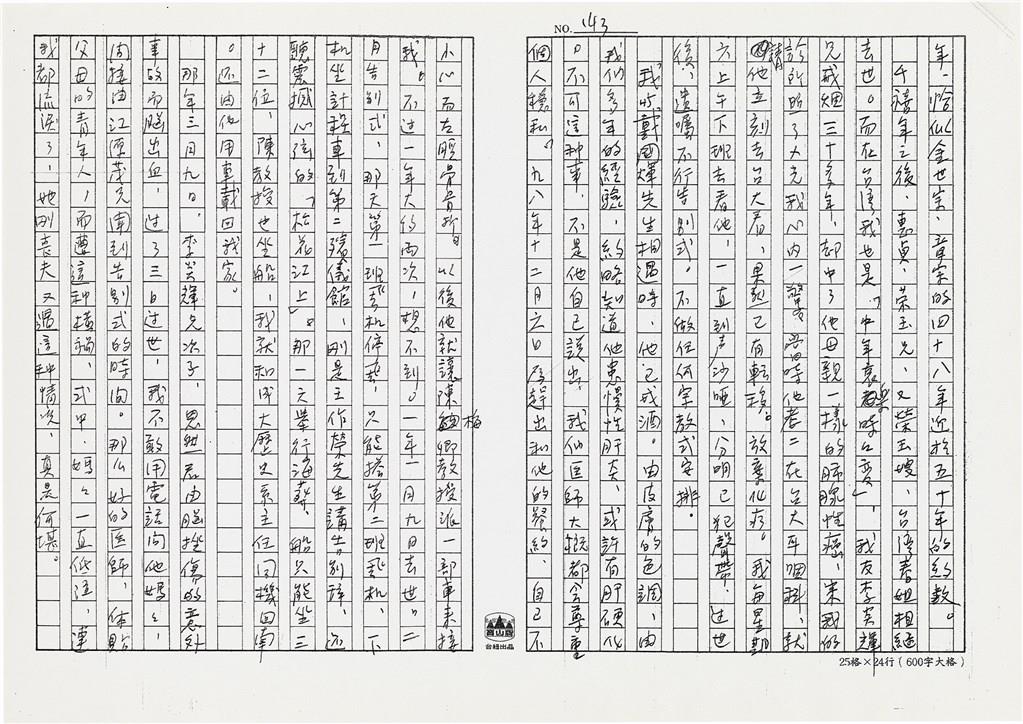 NO. 143
年,恰似金世宗、章宗的四十八年近於五十年的約數。
千禧年之後,惠貞、榮玉兄、又榮玉嫂、台灣春姐相繼
去世。而在台灣我也是「中年哀樂時台變」,我友李英輝
兄戒煙三十多年,卻中了他母親一樣的肺腺性癌,來我的
診所照了X光我心內一驚,當時他老二在台大耳咽科,就
請他立刻去台大看,果然已有轉移。放棄化療。我每星期
六上午下班去看他,一直到声沙啞,分明已犯聲帶。过世
後,遺囑不行告別式。不做任何宗教式安排。
我与戴國煇先生相遇時,他已戒酒。由皮膚的色調,由
我们多年的經驗,約略知道他患慢性肝炎,或許有肝硬化
。不可這种事,不是他自己說出,我们医師大概都会尊重
個人穩私。九八年十二月六日
出和他的契約,自己不
小心而左腿骨骨折,以後他就讓陳梅卿教授派一部車來接
我。不过一年大約兩次,想不到。一年一月九日去世。二
月告別式,那天第一班飛机停飛,只能搭第二班飛机,下
机坐計程車到第二殯儀館,剛是主作榮先生講告別辞,还
聽震撼心弦的「松花江上」。那一天舉行海葬,船只能坐三
十二位,陳教授也坐船,我就和成大歷史系主任同機回南
。还由他用車載回我家。
那年三月九日,李英輝兄次子,思然君由腦挫傷的意外
事故而腦出血,过了三日过世,我不敢用電話问他媽々,
间接由江原茂兄闻到告別式的時间。那么好的医師,体貼
父母的青年人,而遭這种橫禍,式中,媽々一直低泣,連
我都流淚了,她剛喪夫又遇這种情況,真是何堪。
高山牌
台紐出品
25格×24行(600字大格)